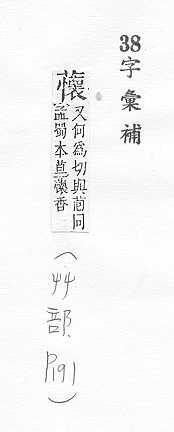 38字彙補
蘹
又何爲切與茴同
孟蜀本草蘹香
(艸部 P191)